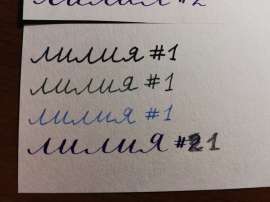 лилия #2
лилия #1
лилия #1
лилия #1
лилия #1